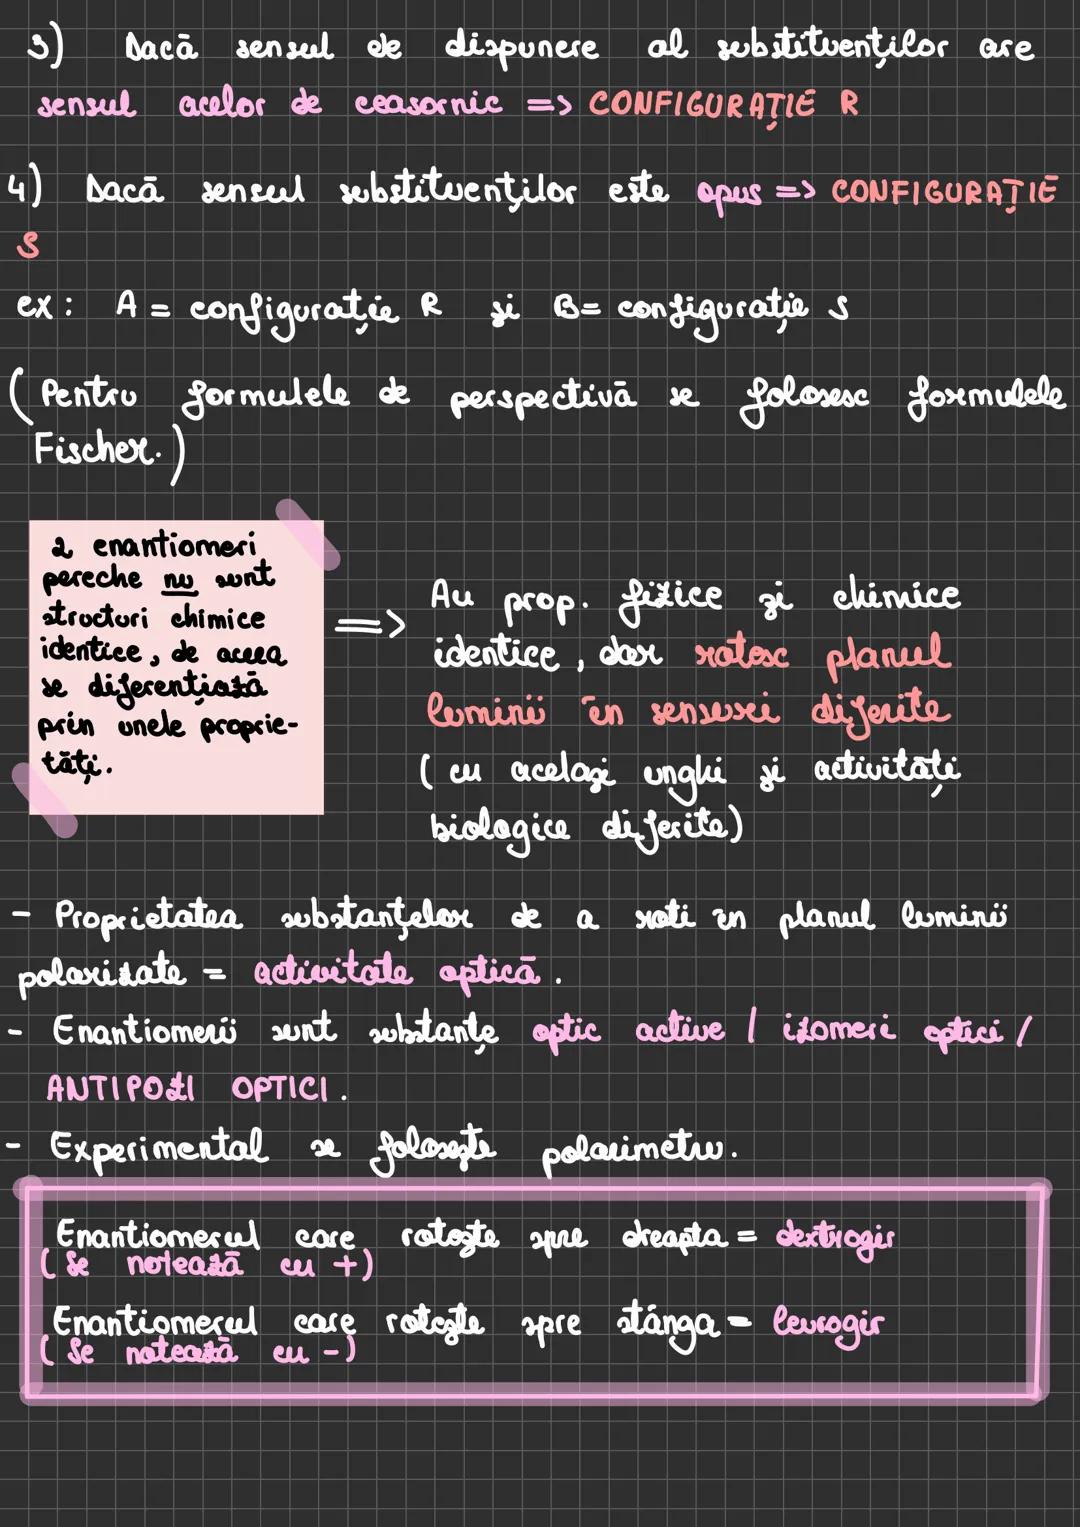 3) Dacă sensul de dispunere al substituenților are
sensul acelor de ceasornic => CONFIGURAȚIE R
4) Dacă sensul substituenților este opus => CONFIGURAȚIE
S
ex: A = configurație R și B= configurație S
(Pentru formulele de perspectivă se folosesc formulele
Fischer.)
2 enantiomeri
pereche nu sunt
structuri chimice
identice, de aceea
se diferențiază
prin unele proprie-
tăți.
=> Au prop. fizice și chimice
identice, dar rotesc planul
luminii în sensuri diferite
(cu același unghi și activități
biologice diferite)
- Proprietatea substanțelor de a roti în planul luminii
polarizate = activitate optică.
- Enantiomerii sunt substanțe optic active / izomeri optici /
ANTIPOZI OPTICI.
- Experimental se folosește polarimetru.
Enantiomerul care rotește spre dreapta = dextrogir
(Se notează cu +)
Enantiomerul care rotește spre stânga = levrogir
(Se notează cu -)